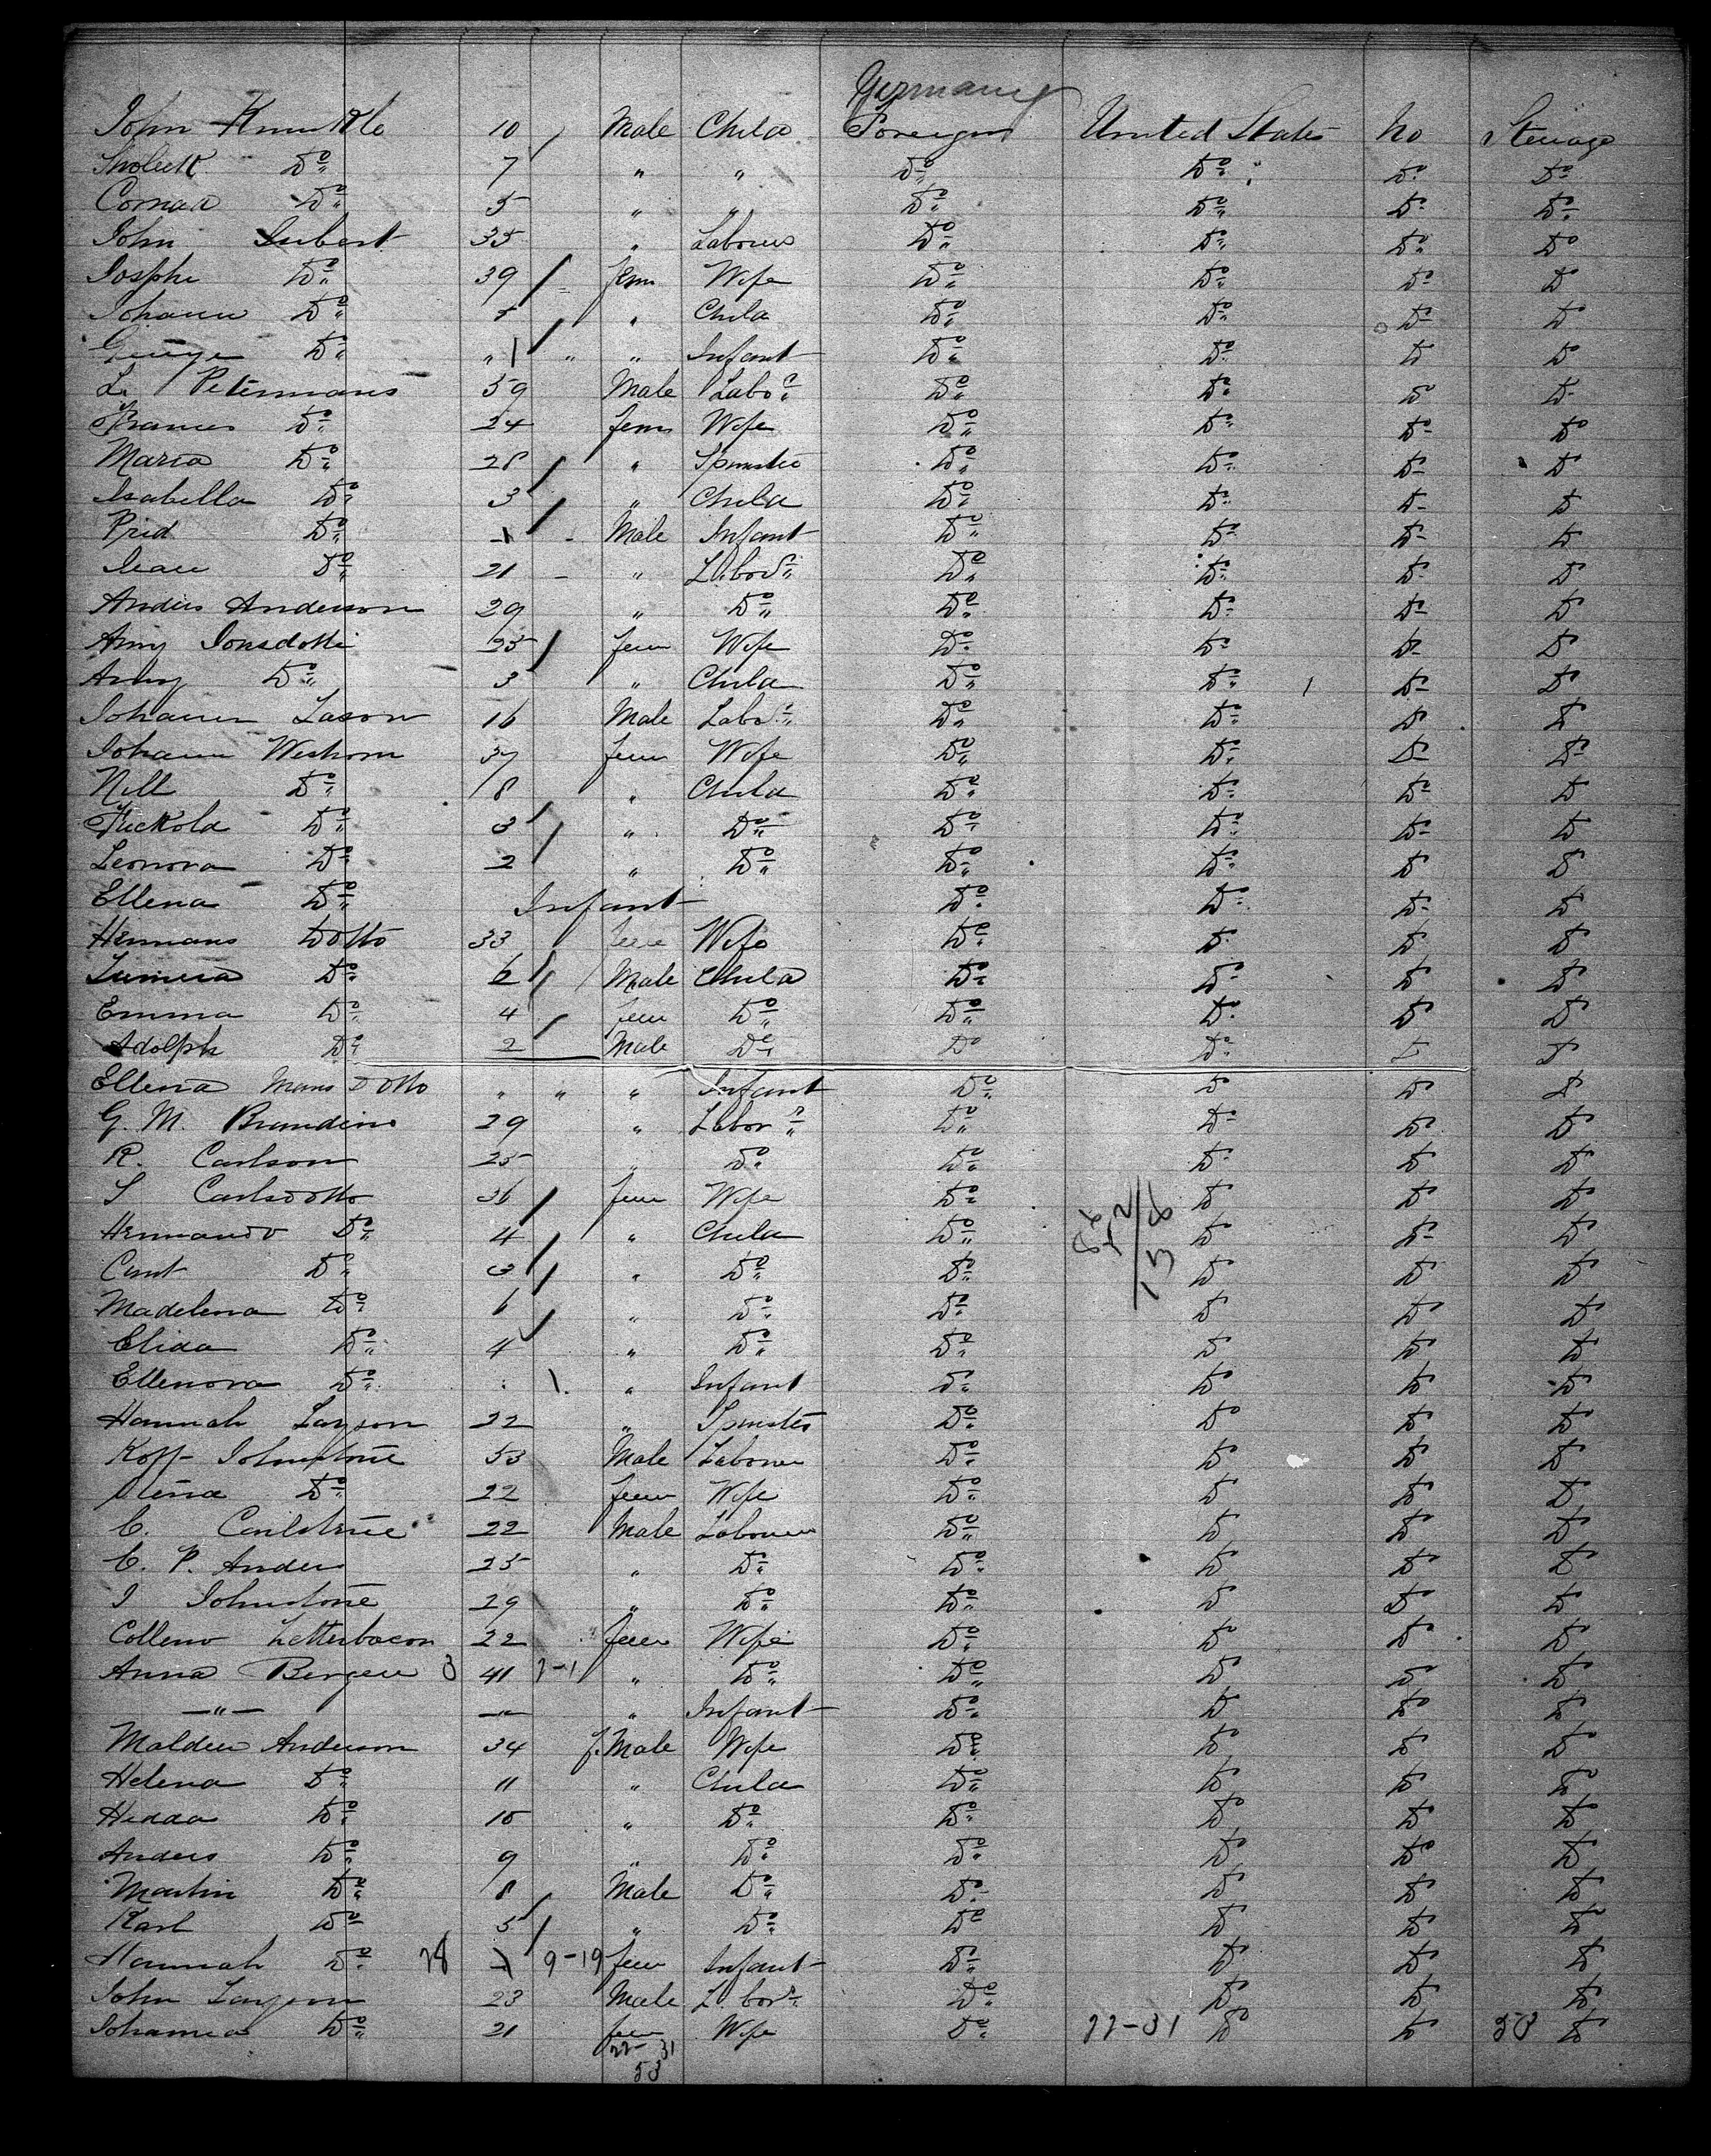 Germany
John Knuckle 10 Male Child Foreign United States No Steerage
Do 7 " " Do Do Do Do
Conrad Do 5 " " Do Do Do Do
John 35 " Labourer Do Do Do Do
Josephe Do 39 Fem Wife Do Do Do Do
Johann Do " Child Do Do Do Do
George Do " 1 " " Infant Do Do Do Do
L. Petermans 59 Male Labor Do Do Do Do
Frances Do 24 Fem Wife Do Do Do Do
Maria Do 28 " Spinster Do Do Do Do
Isabella Do 3 " Child Do Do Do Do
Do 1 - Male Infant Do Do Do Do
Do 21 - " Labor Do Do Do Do
Anders Anderson 29 " Do Do Do Do Do
Amy Jonsdotti 25 Fem Wife Do Do Do Do
Amy Do 3 " Child Do Do Do Do
Johann Lason 16 Male Labor Do Do Do Do
Johann Westrom 37 Fem Wife Do Do Do Do
Nill Do 8 " Child Do Do Do Do
Do 3 " Do Do Do Do Do
Leonora Do 2 " Do Do Do Do Do
Ellena Do Infant Do Do Do Do
Hermans Dotto 33 Fem Wife Do Do Do Do
Do 6 Male Child Do Do Do Do
Emma Do 4 Fem Do Do Do Do Do
Adolph Do 2 Male Do Do Do Do Do
Ellena Mans Dotto " " " Infant Do Do Do Do
G. M. Brandino 29 " Labor Do Do Do Do
R. Carlson 25 " Do Do Do Do Do
S Carlsdotto 36 Fem Wife Do Do Do Do
Hernando Do 4 " Child Do Do Do Do
Do 3 " Do Do Do Do Do
Madelena Do 6 " Do Do Do Do Do
Elida Do 4 " Do Do Do Do Do
Ellenora Do " 1 " Infant Do Do Do Do
Hannah 22 " Spinster Do Do Do Do
Koff Johnstone 53 Male Labourer Do Do Do Do
Stena Do 22 Fem Wife Do Do Do Do
C. 22 Male Labourer Do Do Do Do
C. P. Anders 25 " Do Do Do Do Do
J Johnstone 29 " Do Do Do Do Do
Colleno Letterbacon 22 Fem Wife Do Do Do Do
Anna Bergen 3 41 2-1 " Do Do Do Do Do
—"— —"— " Infant Do Do Do Do
Malden Anderson 34 f. Male Wife Do Do Do Do
Helena Do 11 " Child Do Do Do Do
Hedda Do 10 " Do Do Do Do Do
Anders Do 9 " Do Do Do Do Do
Martin Do 8 Male Do Do Do Do Do
Karl Do 5 " Do Do Do Do Do
Hannah Do 28 1 9-19 Fem Infant Do Do Do Do
John 23 Male Labor Do Do Do Do
Johanna Do 21 Fem Wife Do 22-31 Do Do 53 Do
22-31
53